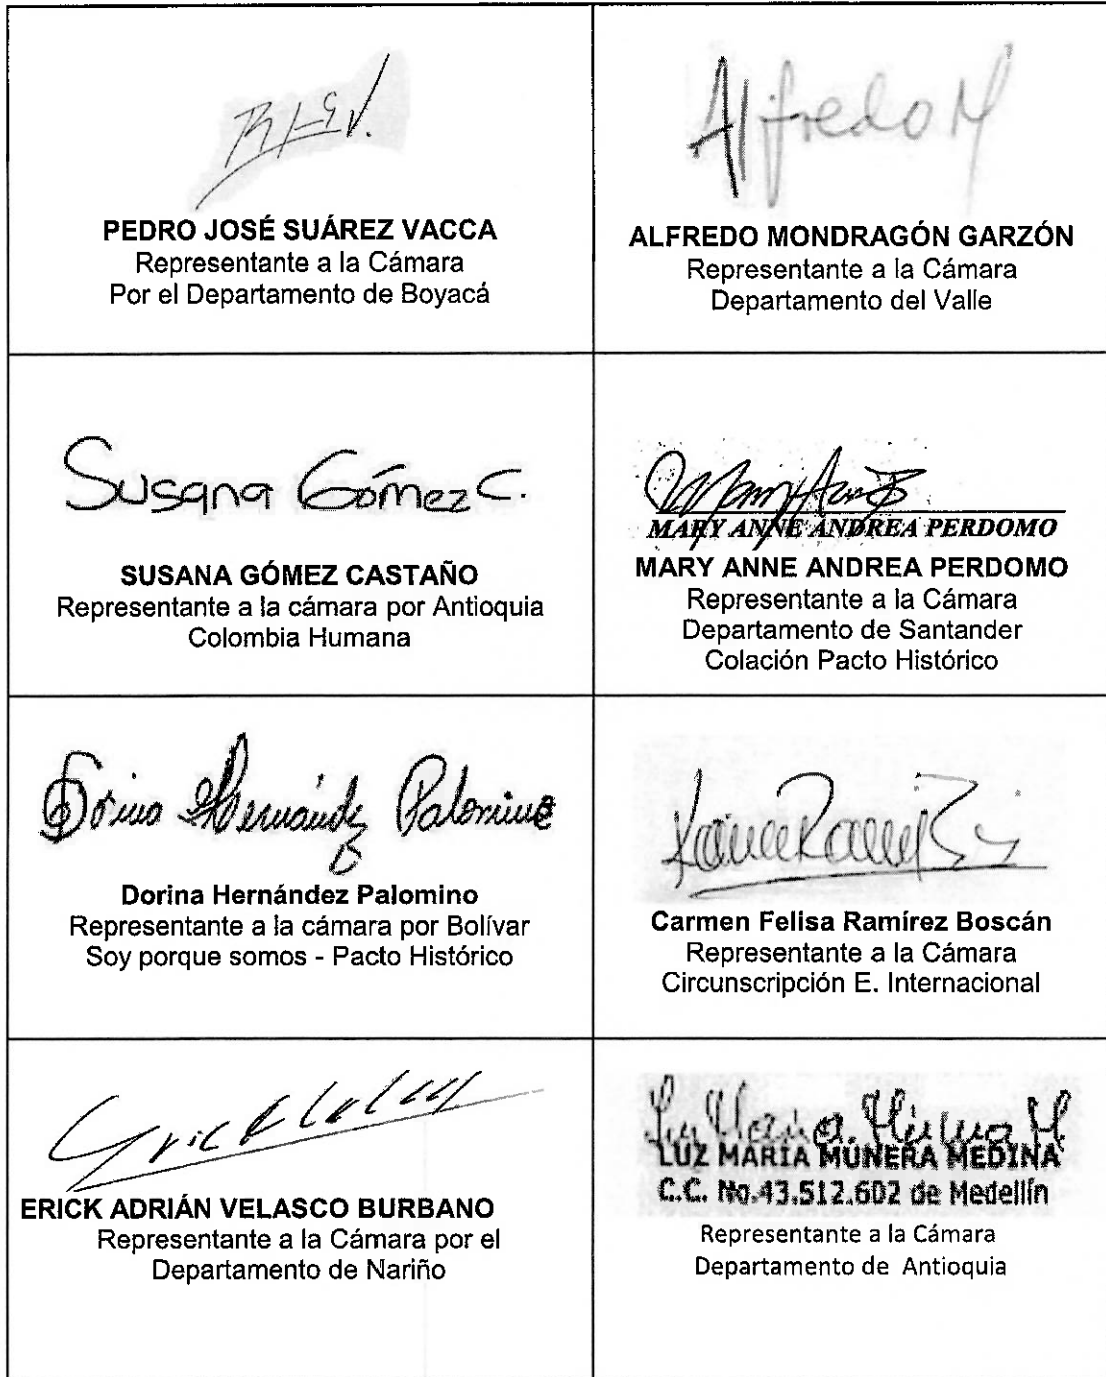 PEDRO JOSÉ SUÁREZ VACCA
Representante a la Cámara
Por el Departamento de Boyacá
Alfredo M
ALFREDO MONDRAGÓN GARZÓN
Representante a la Cámara
Departamento del Valle
Susana Gómez C.
SUSANA GÓMEZ CASTAÑO
Representante a la cámara por Antioquia
Colombia Humana
MARY ANNE ANDREA PERDOMO
MARY ANNE ANDREA PERDOMO
Representante a la Cámara
Departamento de Santander
Colación Pacto Histórico
Dorina Hernández Palomino
Dorina Hernández Palomino
Representante a la cámara por Bolívar
Soy porque somos - Pacto Histórico
Carmen Felisa Ramírez Boscán
Representante a la Cámara
Circunscripción E. Internacional
ERICK ADRIÁN VELASCO BURBANO
Representante a la Cámara por el
Departamento de Nariño
Luz María Múnera M
LUZ MARÍA MÚNERA MEDINA
C.C. No.43.512.602 de Medellín
Representante a la Cámara
Departamento de Antioquia